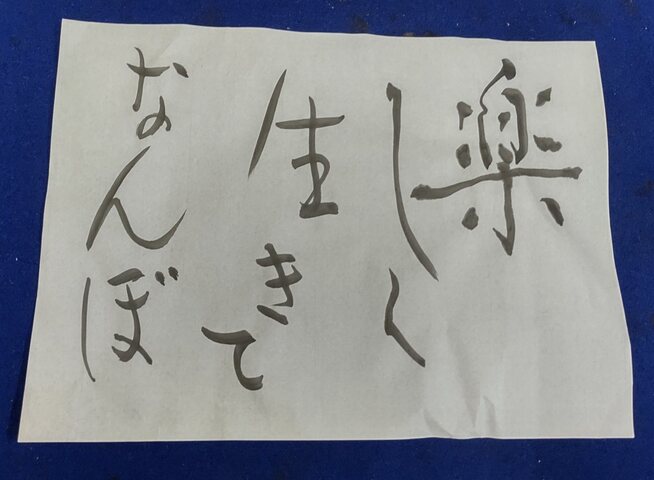 楽しく
生きて
なんぼ